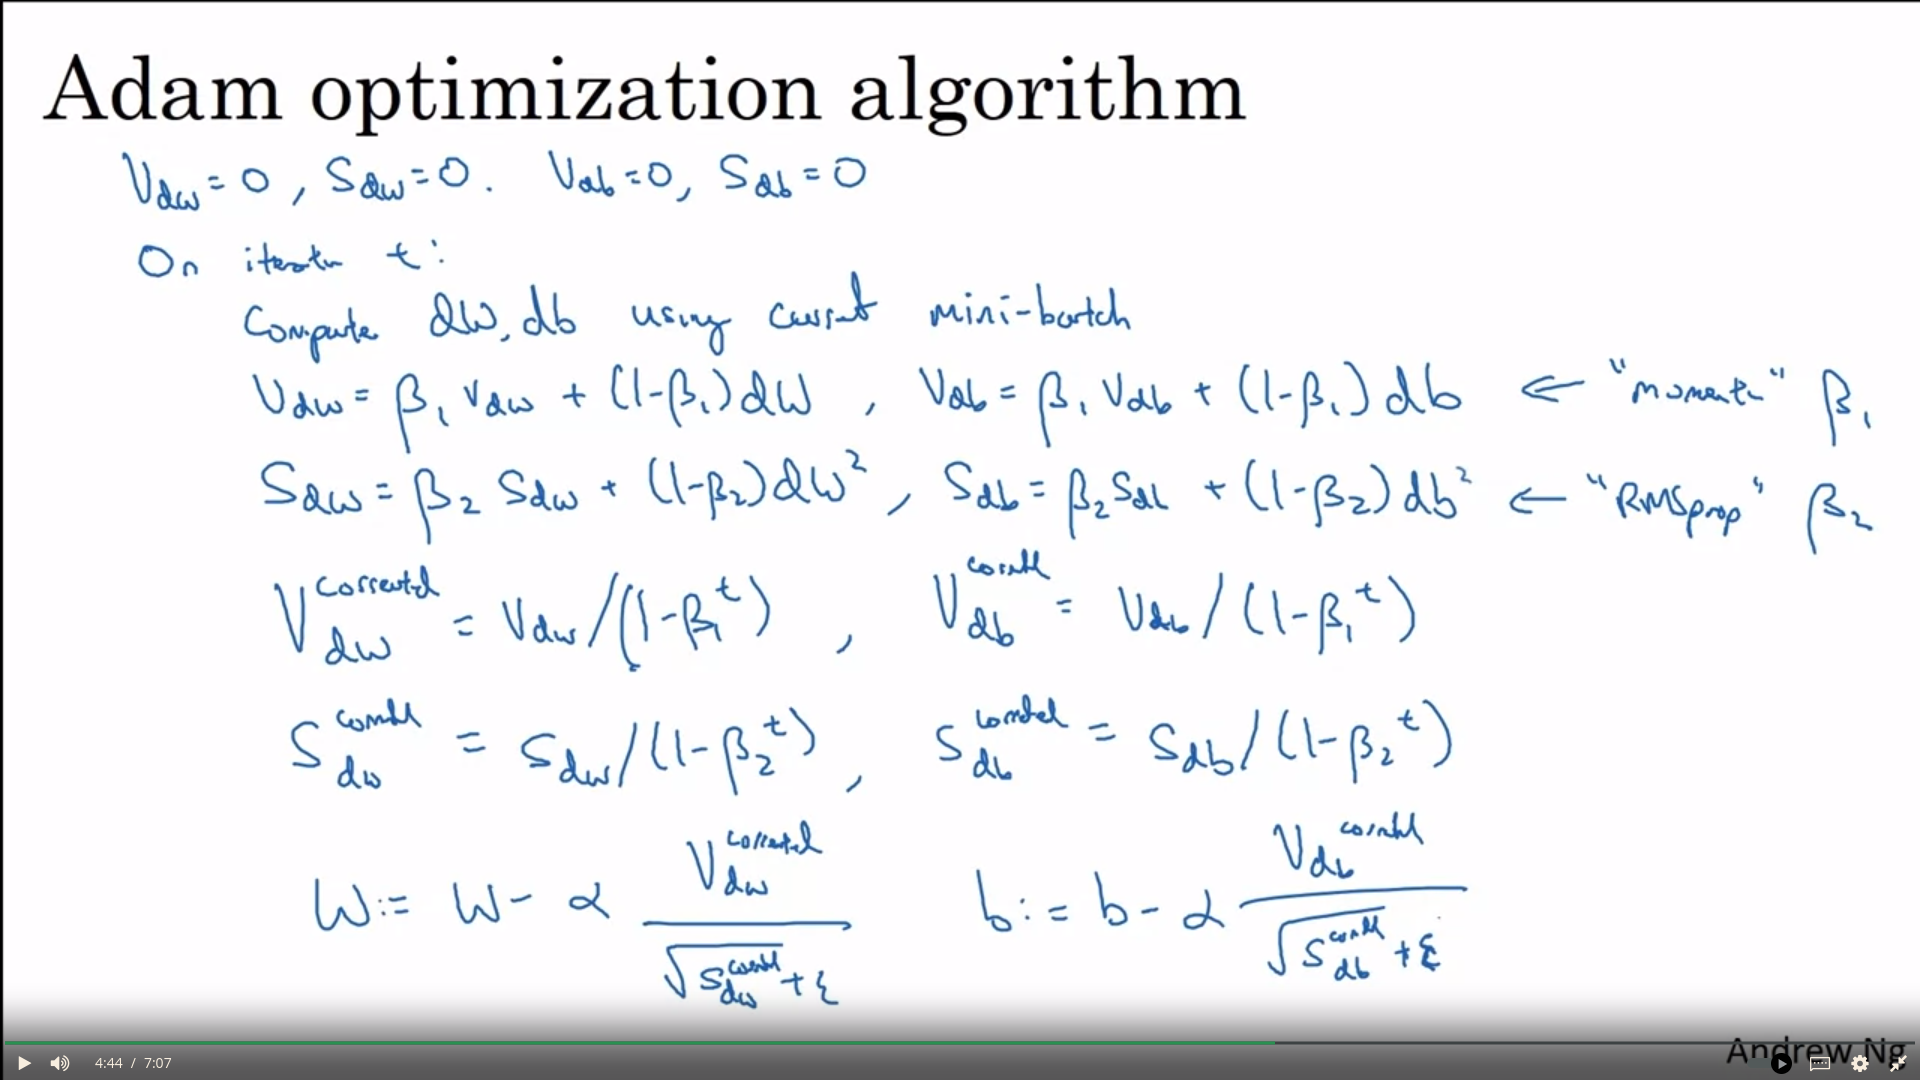 Adam optimization algorithm
V_dw = 0, S_dw = 0. V_db = 0, S_db = 0
On iteration t:
Compute dW, db using current mini-batch
V_dw = β₁ V_dw + (1-β₁) dW , V_db = β₁ V_db + (1-β₁) db ← "momentum" β₁
S_dw = β₂ S_dw + (1-β₂) dW² , S_db = β₂ S_db + (1-β₂) db² ← "RMSprop" β₂
V_dw^corrected = V_dw / (1-β₁^t) , V_db^corrected = V_db / (1-β₁^t)
S_dw^corrected = S_dw / (1-β₂^t) , S_db^corrected = S_db / (1-β₂^t)
W := W - α V_dw^corrected / (√S_dw^corrected + ε) b := b - α V_db^corrected / (√S_db^corrected + ε)
Andrew Ng
4:44 / 7:07